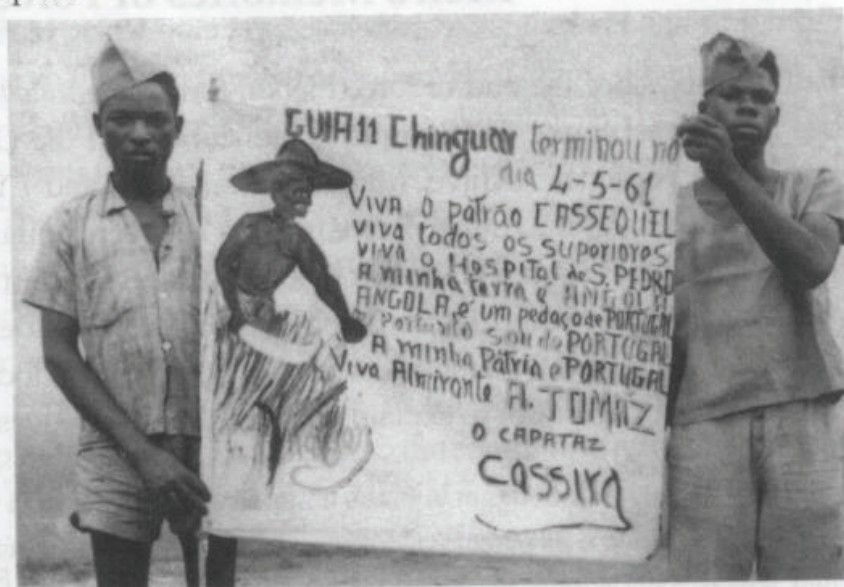 GUIA 11 Chinguar terminou no
dia 4-5-61
VIVA O pátrão CASSEQUEL
VIVA todos os superiores
VIVA O HOSPITAL de S. PEDRO
A minha terra é ANGOLA
ANGOLA, é um pedaço de PORTUGAL
Portanto sou do PORTUGAL
A minha Pátria e PORTUGAL
Viva Almirante A. TOMÁZ
O CAPATAZ
Cassira